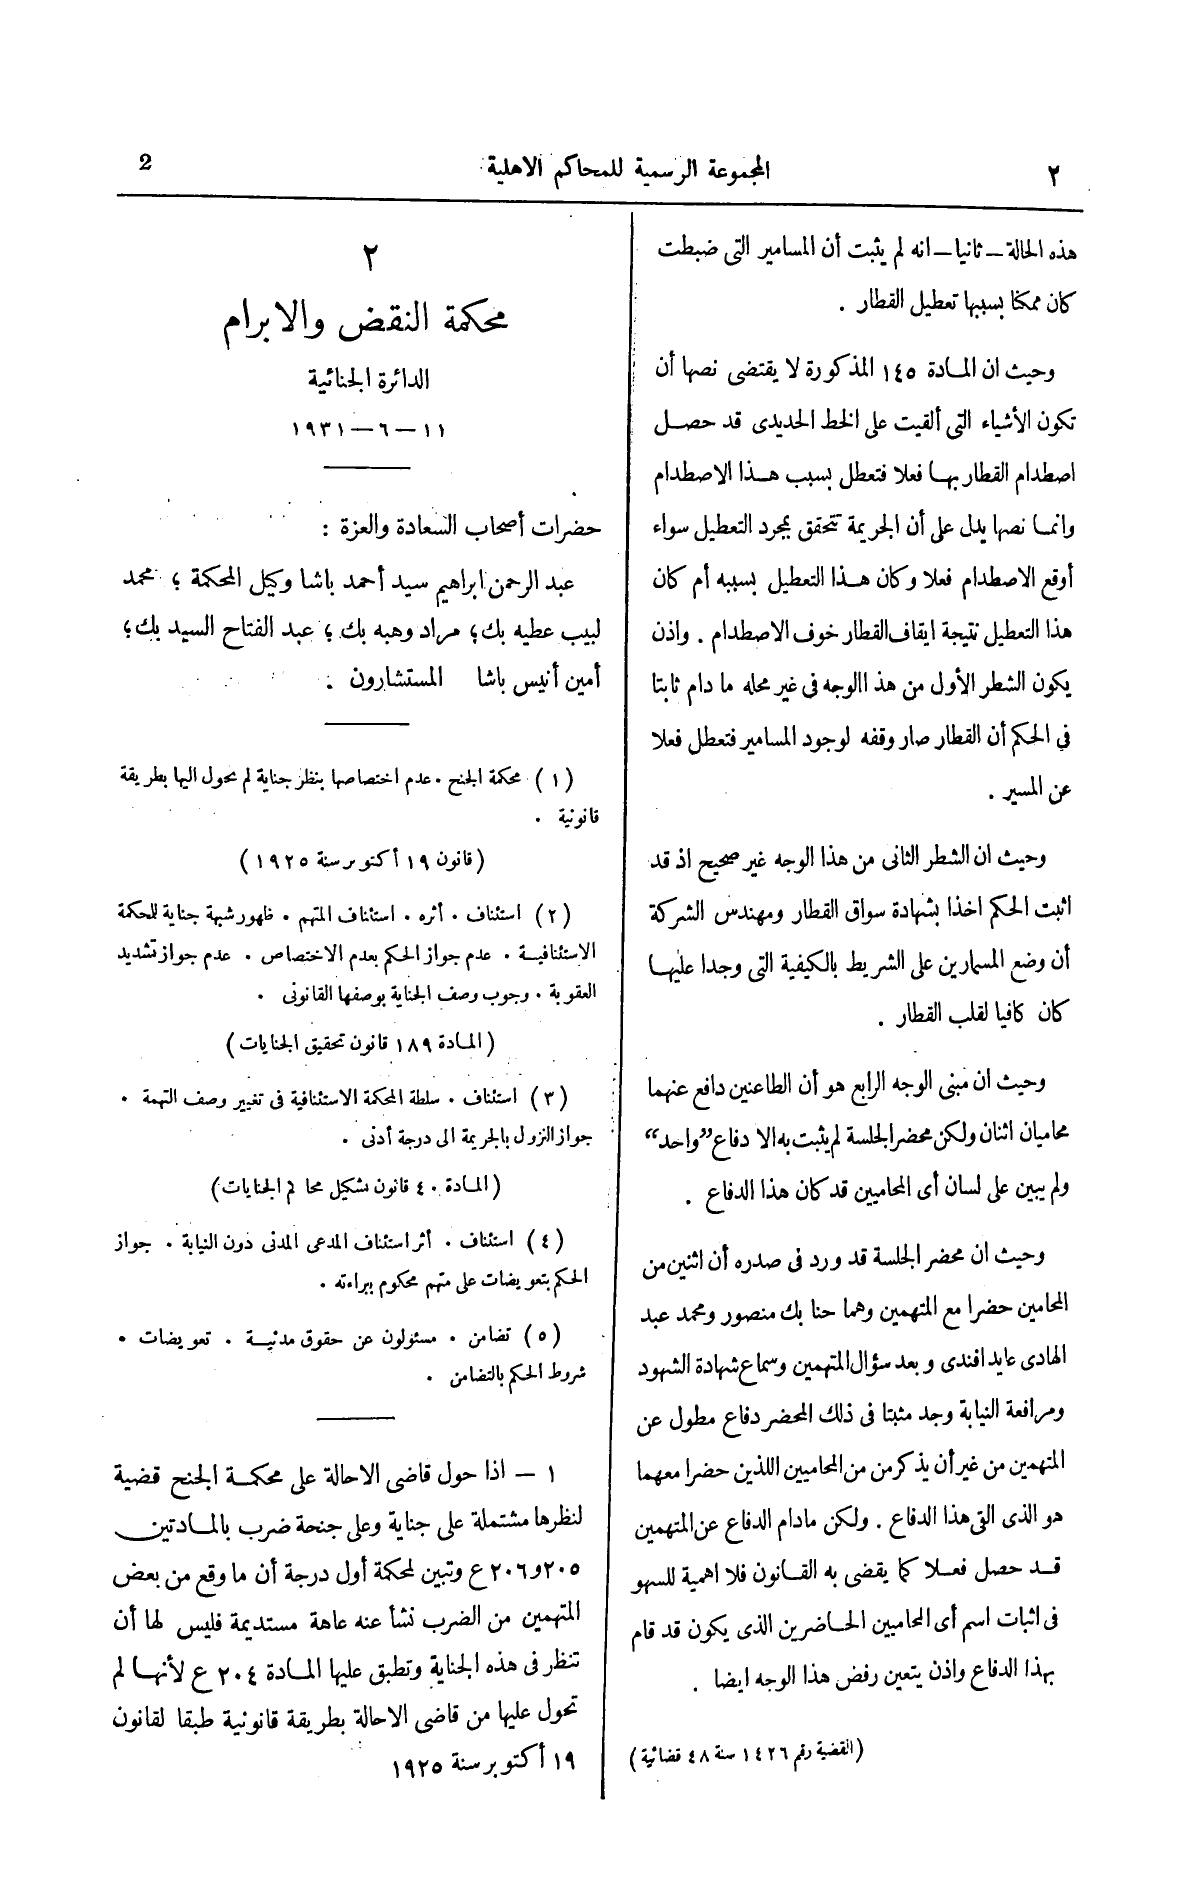 ٢
المجموعة الرسمية للمحاكم الاهلية
2
هذه الحالة – ثانيا – انه لم يثبت أن المسامير التى ضبطت
كان ممكنا بسببها تعطيل القطار .
وحيث ان المادة ١٤٥ المذكورة لا يقتضى نصها أن
تكون الأشياء التى ألقيت على الخط الحديدى قد حصل
اصطدام القطار بها فعلا فتعطل بسبب هذا الاصطدام
وانما نصها يدل على أن الجريمة تتحقق بمجرد التعطيل سواء
أوقع الاصطدام فعلا وكان هذا التعطيل بسببه أم كان
هذا التعطيل نتيجة ايقاف القطار خوف الاصطدام . واذن
يكون الشطر الأول من هذا الوجه فى غير محله ما دام ثابتا
فى الحكم أن القطار صار وقفه لوجود المسامير فتعطل فعلا
عن المسير .
وحيث ان الشطر الثانى من هذا الوجه غير صحيح اذ قد
اثبت الحكم اخذا بشهادة سواق القطار ومهندس الشركة
أن وضع المسمارين على الشريط بالكيفية التى وجدا عليها
كان كافيا لقلب القطار .
وحيث ان مبنى الوجه الرابع هو أن الطاعنين دافع عنهما
محاميان اثنان ولكن محضر الجلسة لم يثبت به الا دفاع ”واحد“
ولم يبين على لسان أى المحاميين قد كان هذا الدفاع .
وحيث ان محضر الجلسة قد ورد فى صدره أن اثنين من
المحامين حضرا مع المتهمين وهما حنا بك منصور ومحمد عبد
الهادى عايد افندى وبعد سؤال المتهمين وسماع شهادة الشهود
ومرافعة النيابة وجد مثبتا فى ذلك المحضر دفاع مطول عن
المتهمين من غير أن يذكر من من المحاميين اللذين حضرا معهما
هو الذى القى هذا الدفاع . ولكن مادام الدفاع عن المتهمين
قد حصل فعلا كما يقضى به القانون فلا اهمية للسهو
فى اثبات اسم أى المحاميين الحاضرين الذى يكون قد قام
بهذا الدفاع واذن يتعين رفض هذا الوجه ايضا .
(القضية رقم ١٤٢٦ سنة ٤٨ قضائية)
٢
محكمة النقض والابرام
الدائرة الجنائية
١١ – ٦ – ١٩٣١
حضرات أصحاب السعادة والعزة :
عبد الرحمن ابراهيم سيد أحمد باشا وكيل المحكمة ؛ محمد
لبيب عطيه بك؛ مراد وهبه بك ؛ عبد الفتاح السيد بك؛
أمين أنيس باشا المستشارون .
(١) محكمة الجنح . عدم اختصاصها بنظر جناية لم محول اليها بطريقة
قانونية .
(قانون ١٩ أكتوبر سنة ١٩٢٥)
(٢) استئناف . أثره . استئناف المتهم . ظهور شبهة جناية للمحكمة
الاستئنافية . عدم جواز الحكم بعدم الاختصاص . عدم جواز تشديد
العقوبة . وجوب وصف الجناية بوصفها القانونى .
(المادة ١٨٩ قانون تحقيق الجنايات)
(٣) استئناف . سلطة المحكمة الاستئنافية فى تغيير وصف التهمة .
جواز النزول بالجريمة الى درجة أدنى .
(المادة ٤٠ قانون تشكيل محا كم الجنايات)
(٤) استئناف . أثر استئناف المدعى المدنى دون النيابة . جواز
الحكم بتعويضات على متهم محكوم ببراءته .
(٥) تضامن . مسئولون عن حقوق مدنية . تعويضات .
شروط الحكم بالتضامن .
١ – اذا حول قاضى الاحالة على محكمة الجنح قضية
لنظرها مشتملة على جناية وعلى جنحة ضرب بالمادتين
٢٠٥ و ٢٠٦ ع وتبين لمحكمة أول درجة أن ما وقع من بعض
المتهمين من الضرب نشأ عنه عاهة مستديمة فليس لها أن
تنظر فى هذه الجناية وتطبق عليها المادة ٢٠٤ ع لأنها لم
تحول عليها من قاضى الاحالة بطريقة قانونية طبقا لقانون
١٩ أكتوبر سنة ١٩٢٥